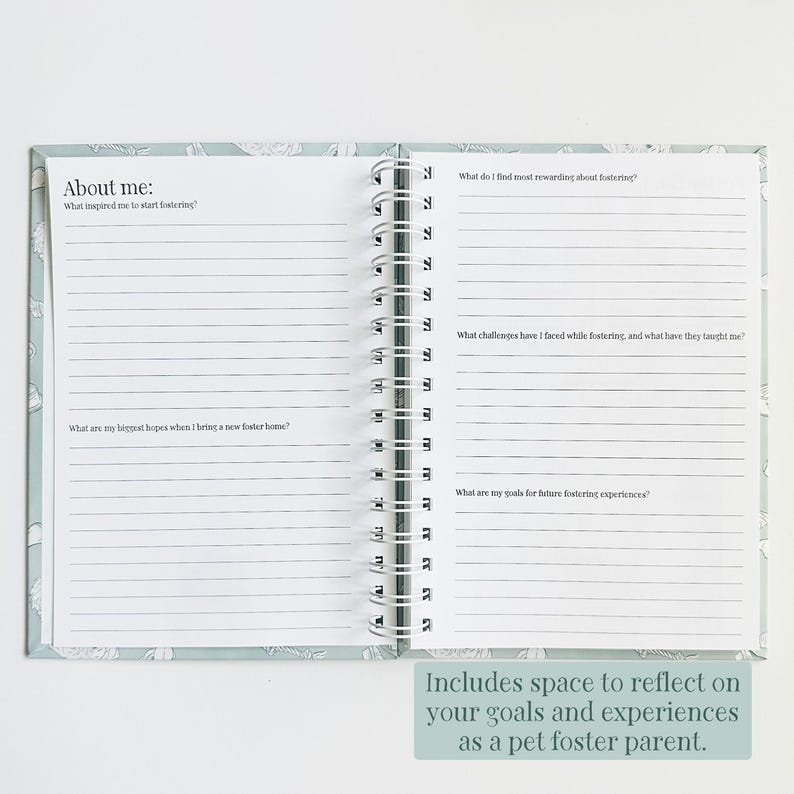 About me:
What inspired me to start fostering?
What are my biggest hopes when I bring a new foster home?
What do I find most rewarding about fostering?
What challenges have I faced while fostering, and what have they taught me?
What are my goals for future fostering experiences?
Includes space to reflect on
your goals and experiences
as a pet foster parent.